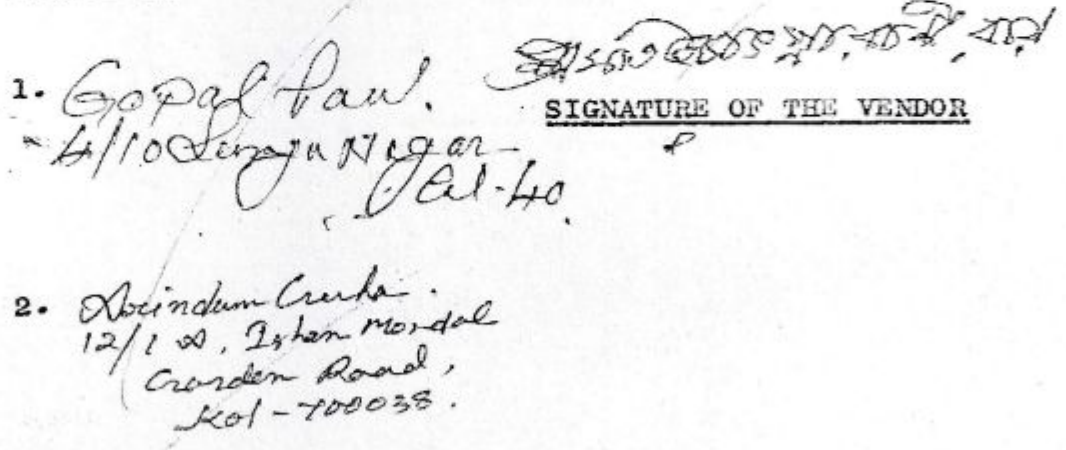 1. Gopal Paul.
4/10 Nagar
Cal-40
SIGNATURE OF THE VENDOR
2. Arindam Guha.
12/1 A, Ishan Mondal
Garden Road,
Kol-700038.